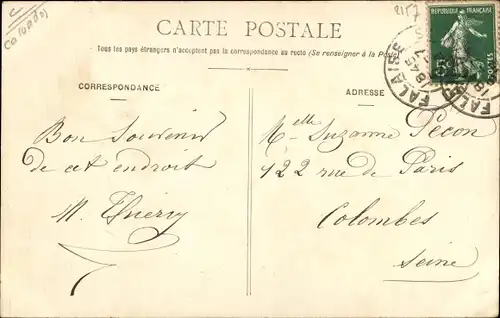 CARTE POSTALE
Tous les pays étrangers n'acceptent pas la correspondance au recto (Se renseigner à la Poste
CORRESPONDANCE
ADRESSE
RÉPUBLIQUE FRANÇAISE
5
FALAISE
18 45
FALAISE
Bon Souvenir
de cet endroit
M. Thiery
Melle Suzanne Pecon
122 rue de Paris
Colombes
Seine